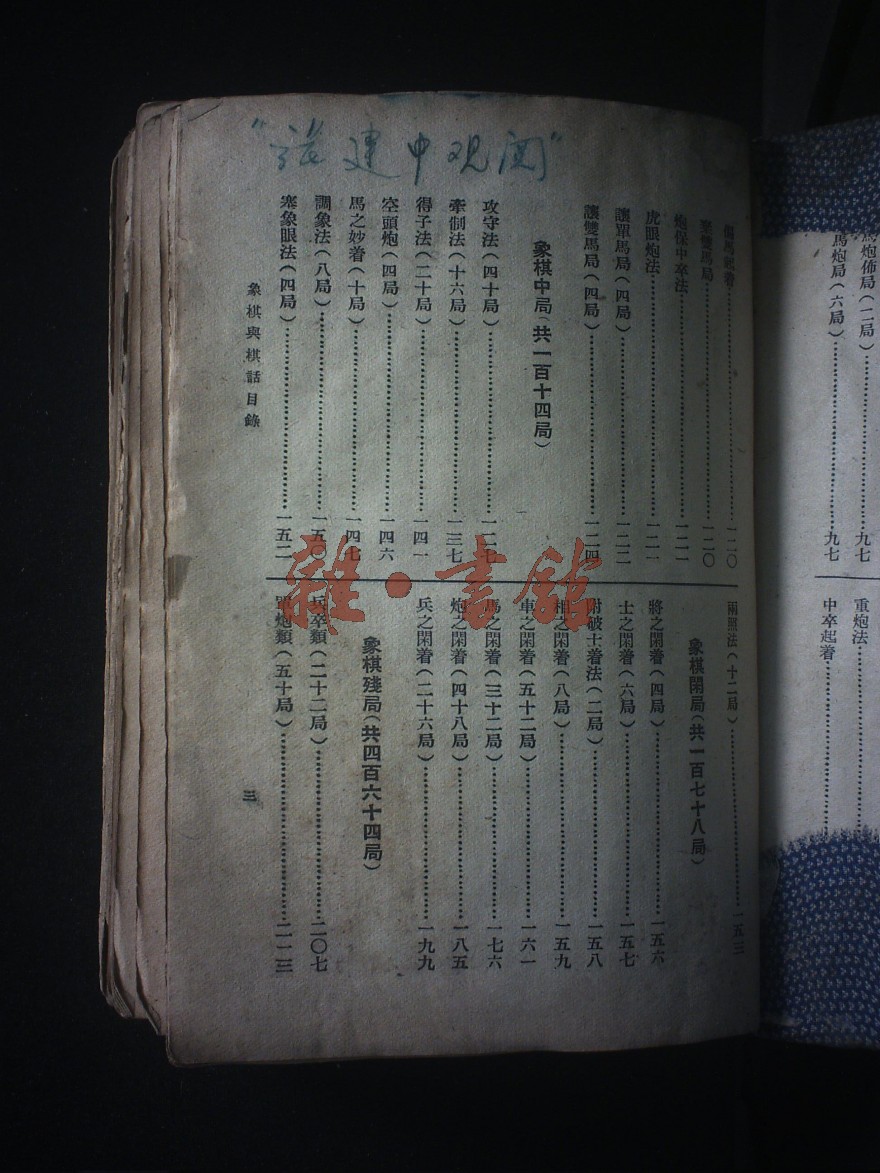 張建中观阅
馬炮佈局(二局)……九七
馬炮局(六局)……九七
重炮法……
中卒起着……
偏馬起着……一二〇
棄雙馬局……一二〇
炮保中卒法……一二一
虎眼炮法……一二一
讓單馬局(四局)……一二二
讓雙馬局(四局)……一二四
象棋中局(共一百十四局)
攻守法(四十局)……一二七
牽制法(十六局)……一三七
得子法(二十局)……一四一
空頭炮(四局)……一四六
馬之妙着(十局)……一四七
調象法(八局)……一五〇
塞象眼法(四局)……一五二
兩照法(十二局)……一五三
象棋閑局(共一百七十八局)
將之閑着(四局)……一五六
士之閑着(六局)……一五七
附破士着法(二局)……一五八
相之閑着(八局)……一五九
車之閑着(五十二局)……一六一
馬之閑着(三十二局)……一七六
炮之閑着(四十八局)……一八五
兵之閑着(二十六局)……一九九
象棋殘局(共四百六十四局)
兵卒類(二十二局)……二〇七
單炮類(五十局)……二一三
象棋與棋話目錄
三
雜·書館